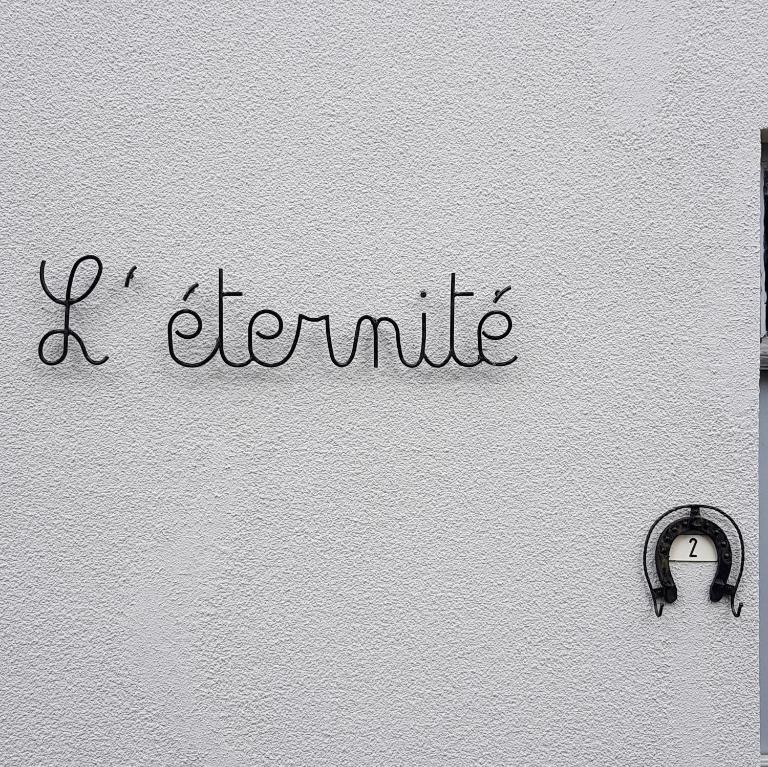 L'éternité
2